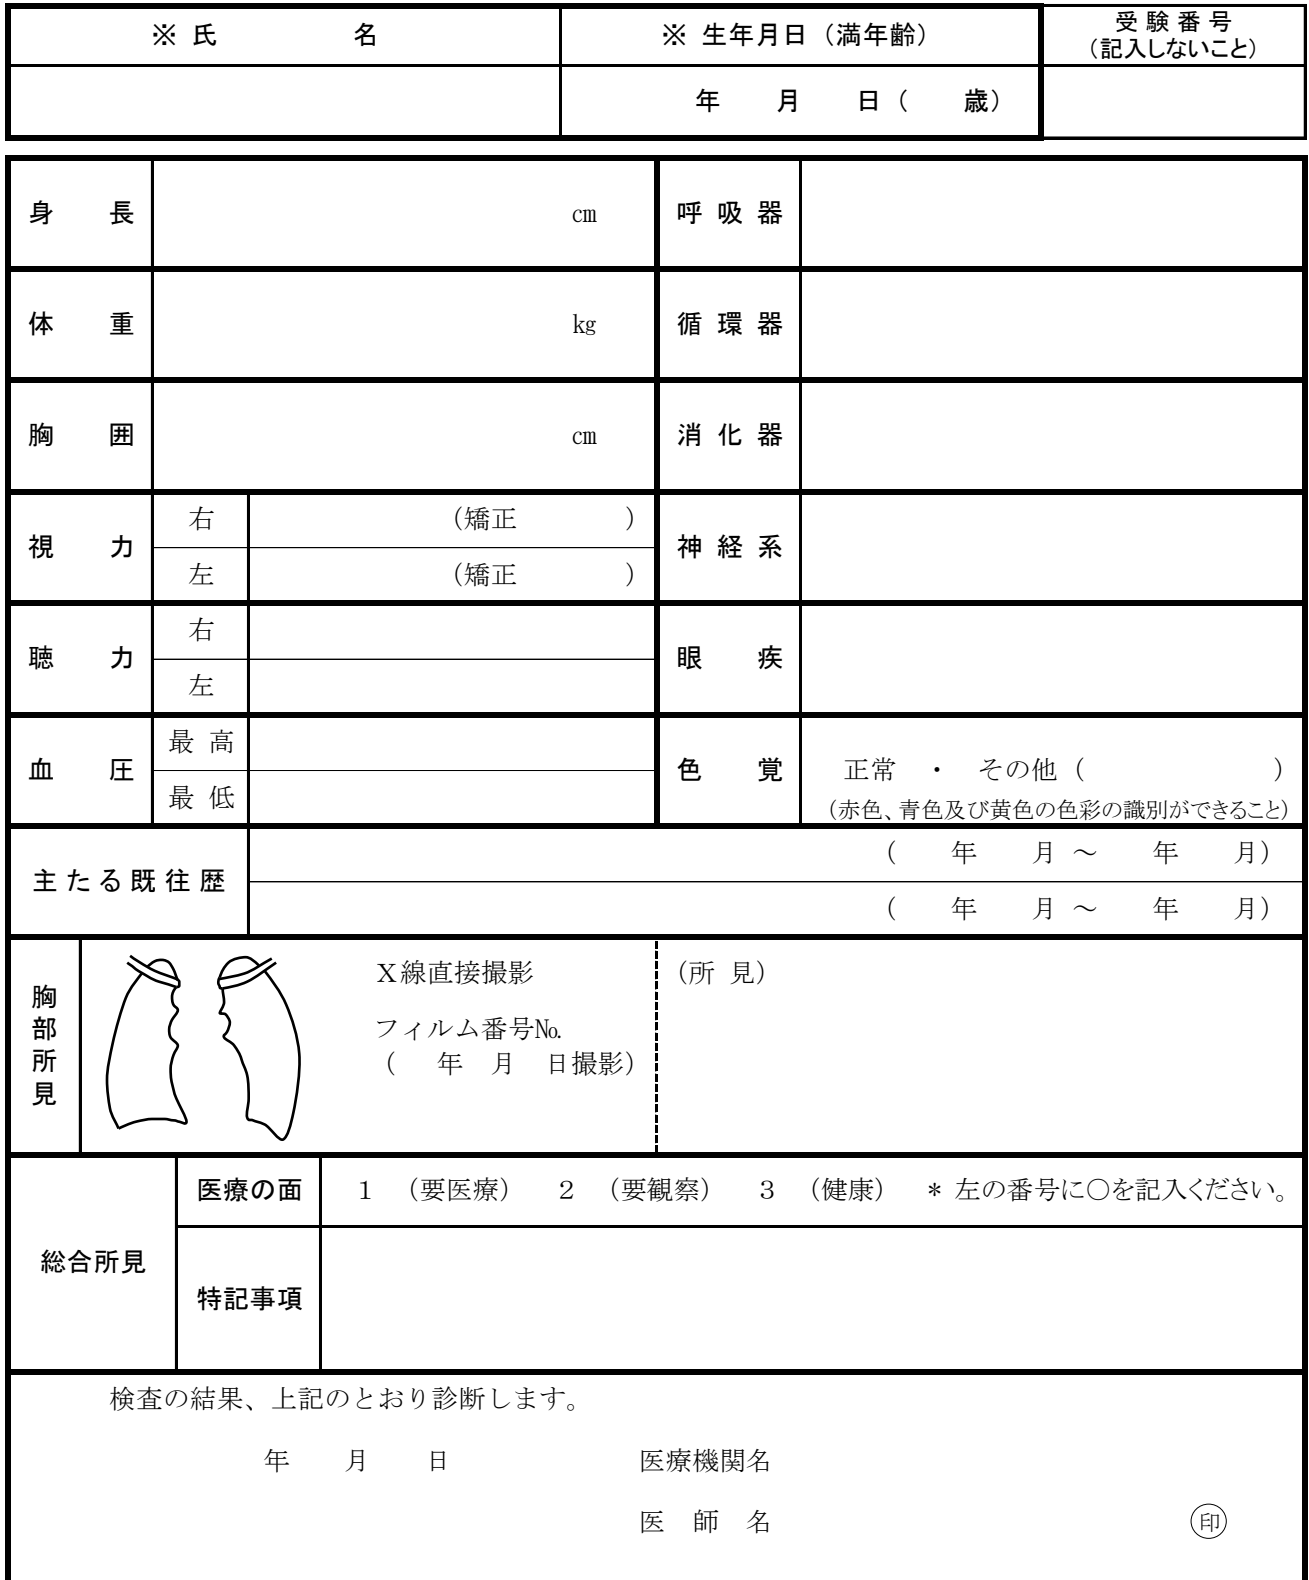 ※ 氏　　　名　※ 生年月日（満年齢）　受 験 番 号
（記入しないこと）
年　月　日（　歳）
身　長　cm　呼 吸 器
体　重　kg　循 環 器
胸　囲　cm　消 化 器
視　力　右　（矯正　　　）　神 経 系
左　（矯正　　　）
聴　力　右　眼　疾
左
血　圧　最 高　色　覚　正常　・　その他（　　　　　）
最 低　（赤色、青色及び黄色の色彩の識別ができること）
主たる既往歴　（　年　月 ～　年　月）
（　年　月 ～　年　月）
胸部所見　X線直接撮影　（所 見）
フィルム番号№
（　年　月　日撮影）
総合所見　医療の面　１　（要医療）　２　（要観察）　３　（健康）　＊ 左の番号に○を記入ください。
特記事項
検査の結果、上記のとおり診断します。
年　月　日　医療機関名
医　師　名　㊞